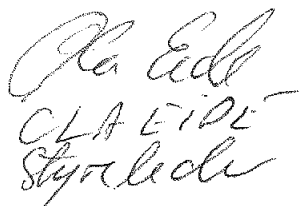 Ola Eide
OLA EIDE
Styreleder